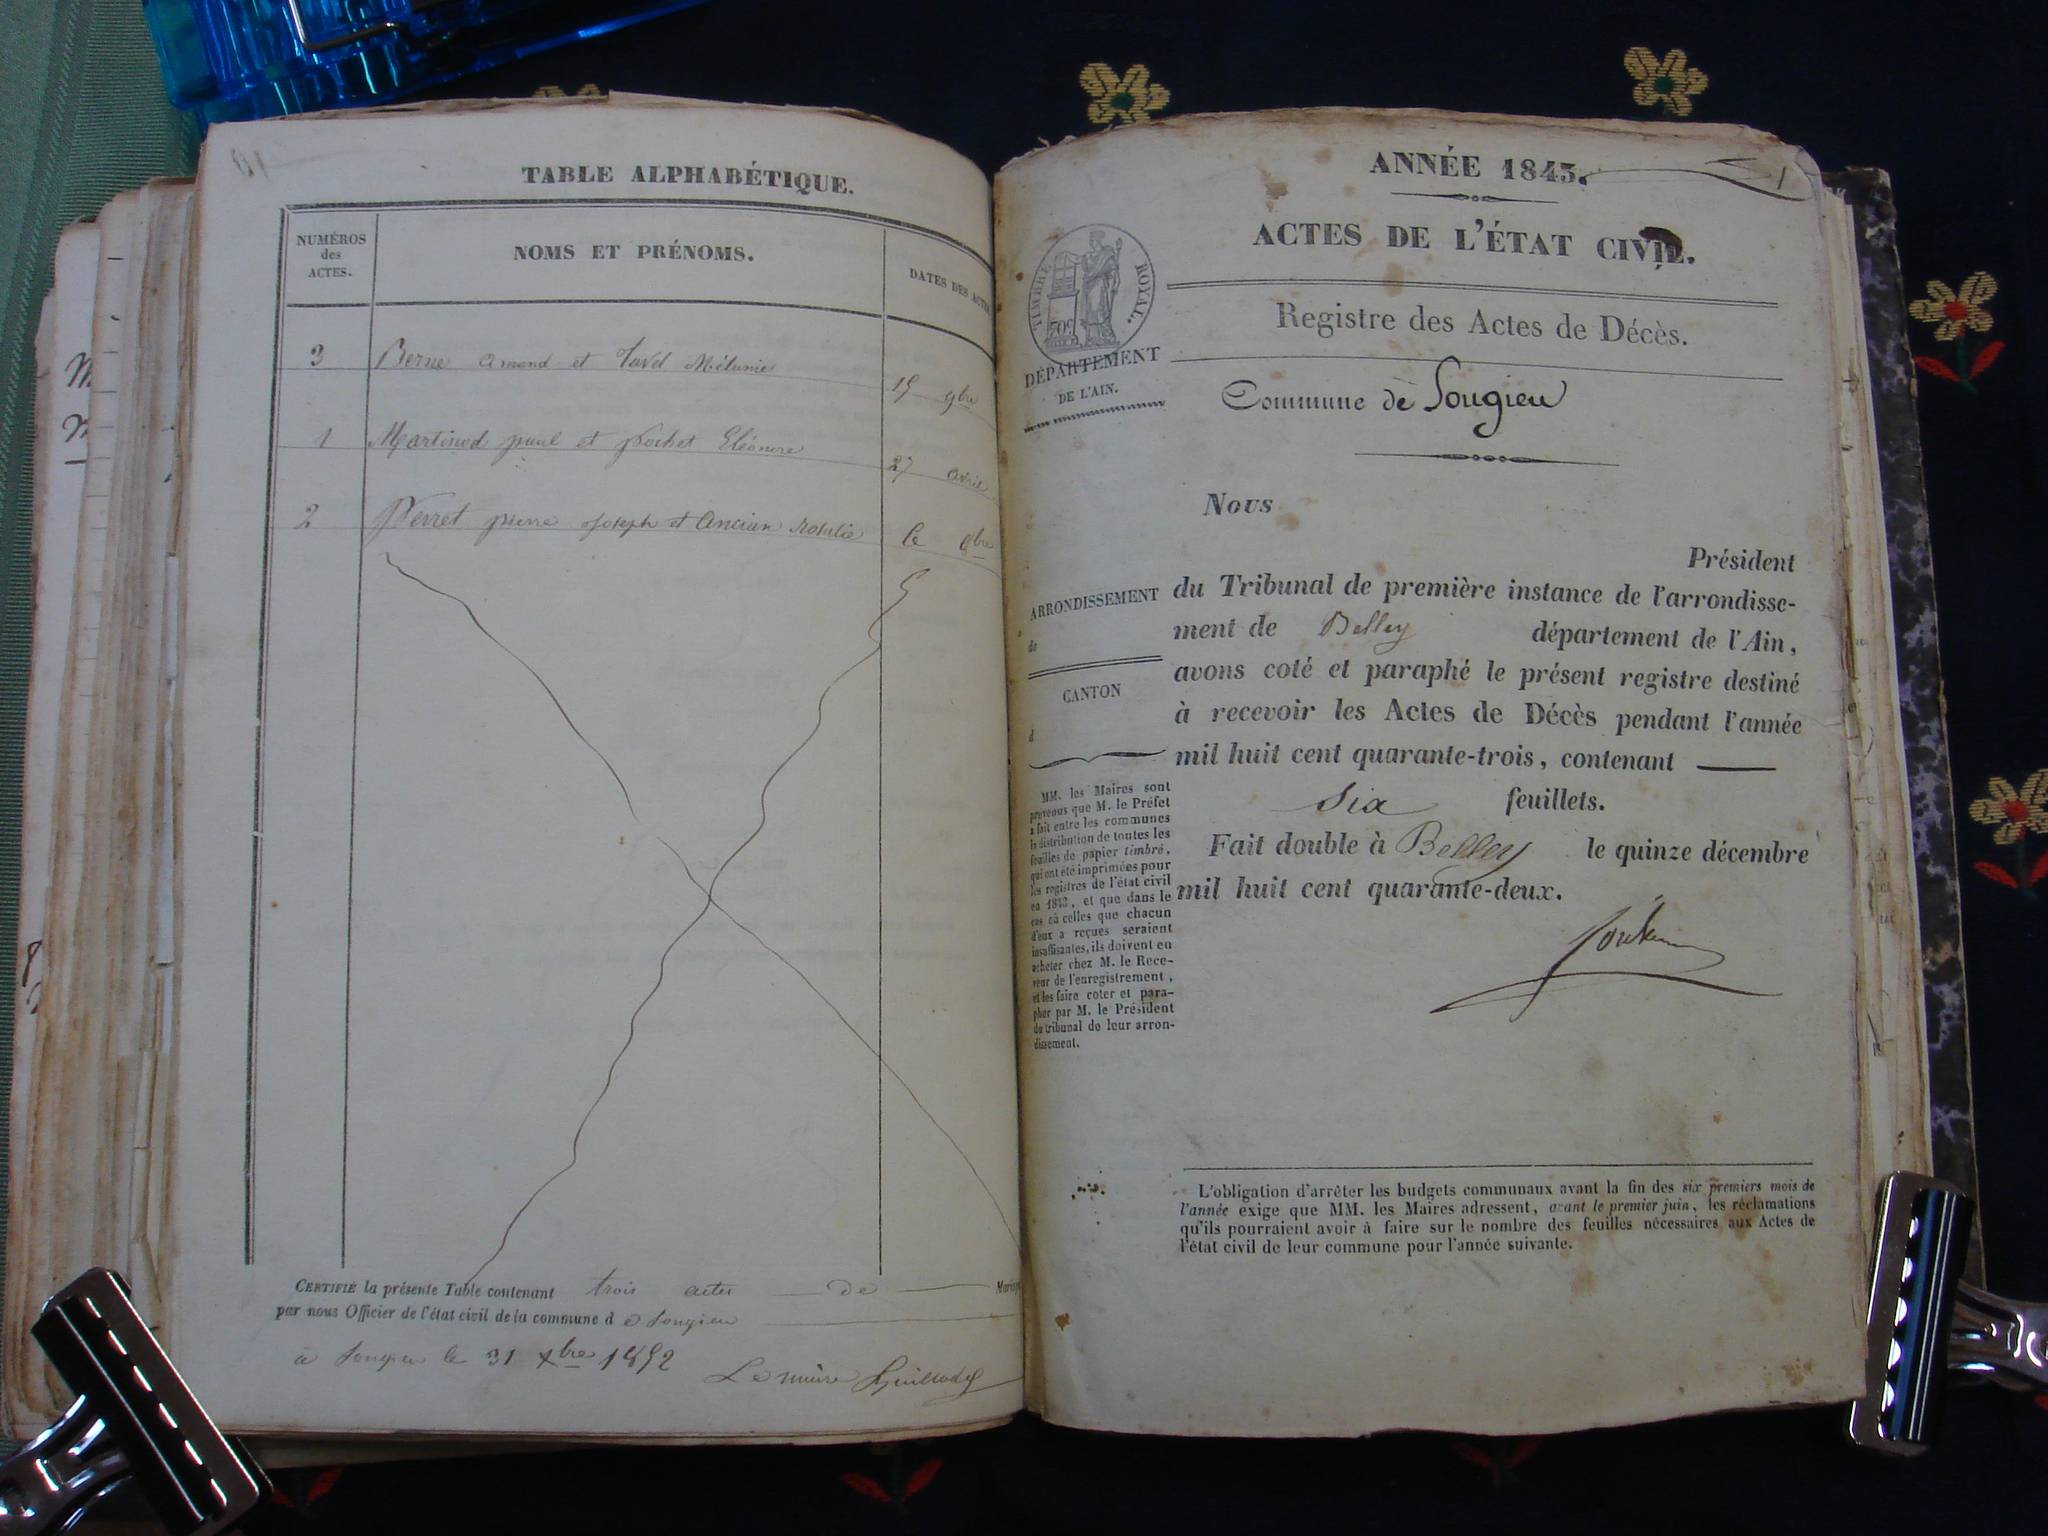 TABLE ALPHABÉTIQUE.
NUMÉROS
des
ACTES.
NOMS ET PRÉNOMS.
DATES DES ACTES
3 Berne amand et Tavel Mélanie 15 9bre
1 Martinod paul et pochet Eléonore 27 avril
2 Perret pierre Joseph et Ancian rosalie Le 8bre
CERTIFIÉ la présente Table contenant trois actes de Mariage
par nous Officier de l'état civil de la commune d e Songieu
à Songieu le 31 xbre 1852
Le maire
ANNÉE 1843.
1
ACTES DE L'ÉTAT CIVIL.
TIMBRE ROYAL.
70c
Registre des Actes de Décès.
DÉPARTEMENT
DE L'AIN.
Commune de Songieu
Nous
Président
du Tribunal de première instance de l'arrondisse-
ment de Belley département de l'Ain,
avons coté et paraphé le présent registre destiné
à recevoir les Actes de Décès pendant l'année
mil huit cent quarante-trois, contenant
six feuillets.
Fait double à Belley le quinze décembre
mil huit cent quarante-deux.
ARRONDISSEMENT
de
CANTON
d
MM. les Maires sont
prévenus que M. le Préfet
a fait entre les communes
la distribution de toutes les
feuilles de papier timbré,
qui ont été imprimées pour
les registres de l'état civil
en 1843, et que dans le
cas où celles que chacun
d'eux a reçues seraient
insuffisantes, ils doivent en
acheter chez M. le Rece-
veur de l'enregistrement,
et les faire coter et para-
pher par M. le Président
du tribunal de leur arron-
dissement.
L'obligation d'arrêter les budgets communaux avant la fin des six premiers mois de
l'année exige que MM. les Maires adressent, avant le premier juin, les réclamations
qu'ils pourraient avoir à faire sur le nombre des feuilles nécessaires aux Actes de
l'état civil de leur commune pour l'année suivante.